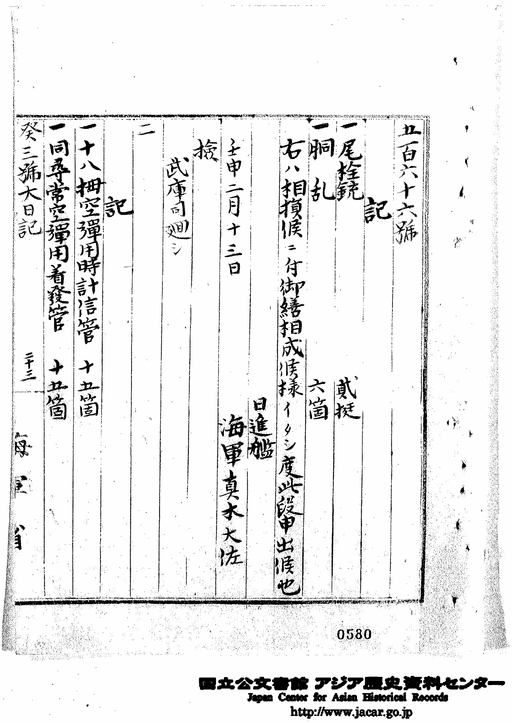 五百六十六號
記
一尾栓銃 貳挺
一胴乱 六箇
右ハ相損候ニ付御繕相成候様イタシ度此段申出候也
日進艦
壬申二月十三日 海軍真木大佐
検
武庫司廻シ
二
記
一十八拇空彈用時計信管 十五箇
一同尋常空彈用着發管 十五箇
癸三號大日記 三十三 海軍省
0580
国立公文書館 アジア歴史資料センター
Japan Center for Asian Historical Records
http://www.jacar.go.jp